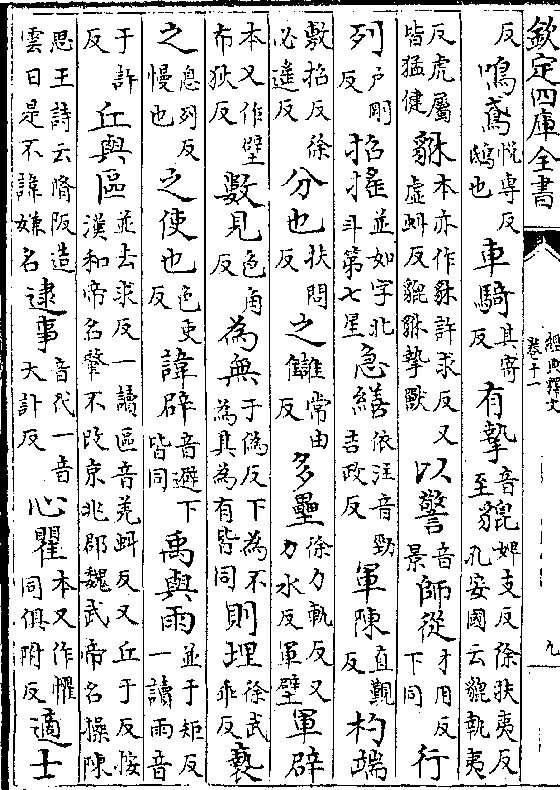 欽定四庫全書
經典釋文
卷十一
九
反 鳴鳶悅專反鴟也 車騎其寄反 有摯音至 貔婢支反徐扶夷反孔安國云貔執夷
反虎屬皆猛健 貅本亦作豼許求反又虛虯反貔貅摯獸 以警音景 師從才用反下同 行
列戶剛反 招搖並如字北斗第七星 急繕依注音勁吉政反 軍陳直覲反 杓端
敷招反徐必遙反 分也扶問反 之讎常由反 多壘徐力軌反又力水反軍壁 軍辟
本又作壁布狄反 數見色角反 為無于偽反下為不為其為有皆同 則埋徐武乖反 褻
之息列反慢也 之使也色吏反 諱辟音避下皆同 禹與雨並于矩反一讀雨音
于許反 丘與區並去求反一讀區音羌虯反又丘于反按漢和帝名肇不改京兆郡魏武帝名操陳
思王詩云脩阪造雲日是不諱嫌名 逮事音代一音大計反 心瞿本又作懼同俱附反 適士